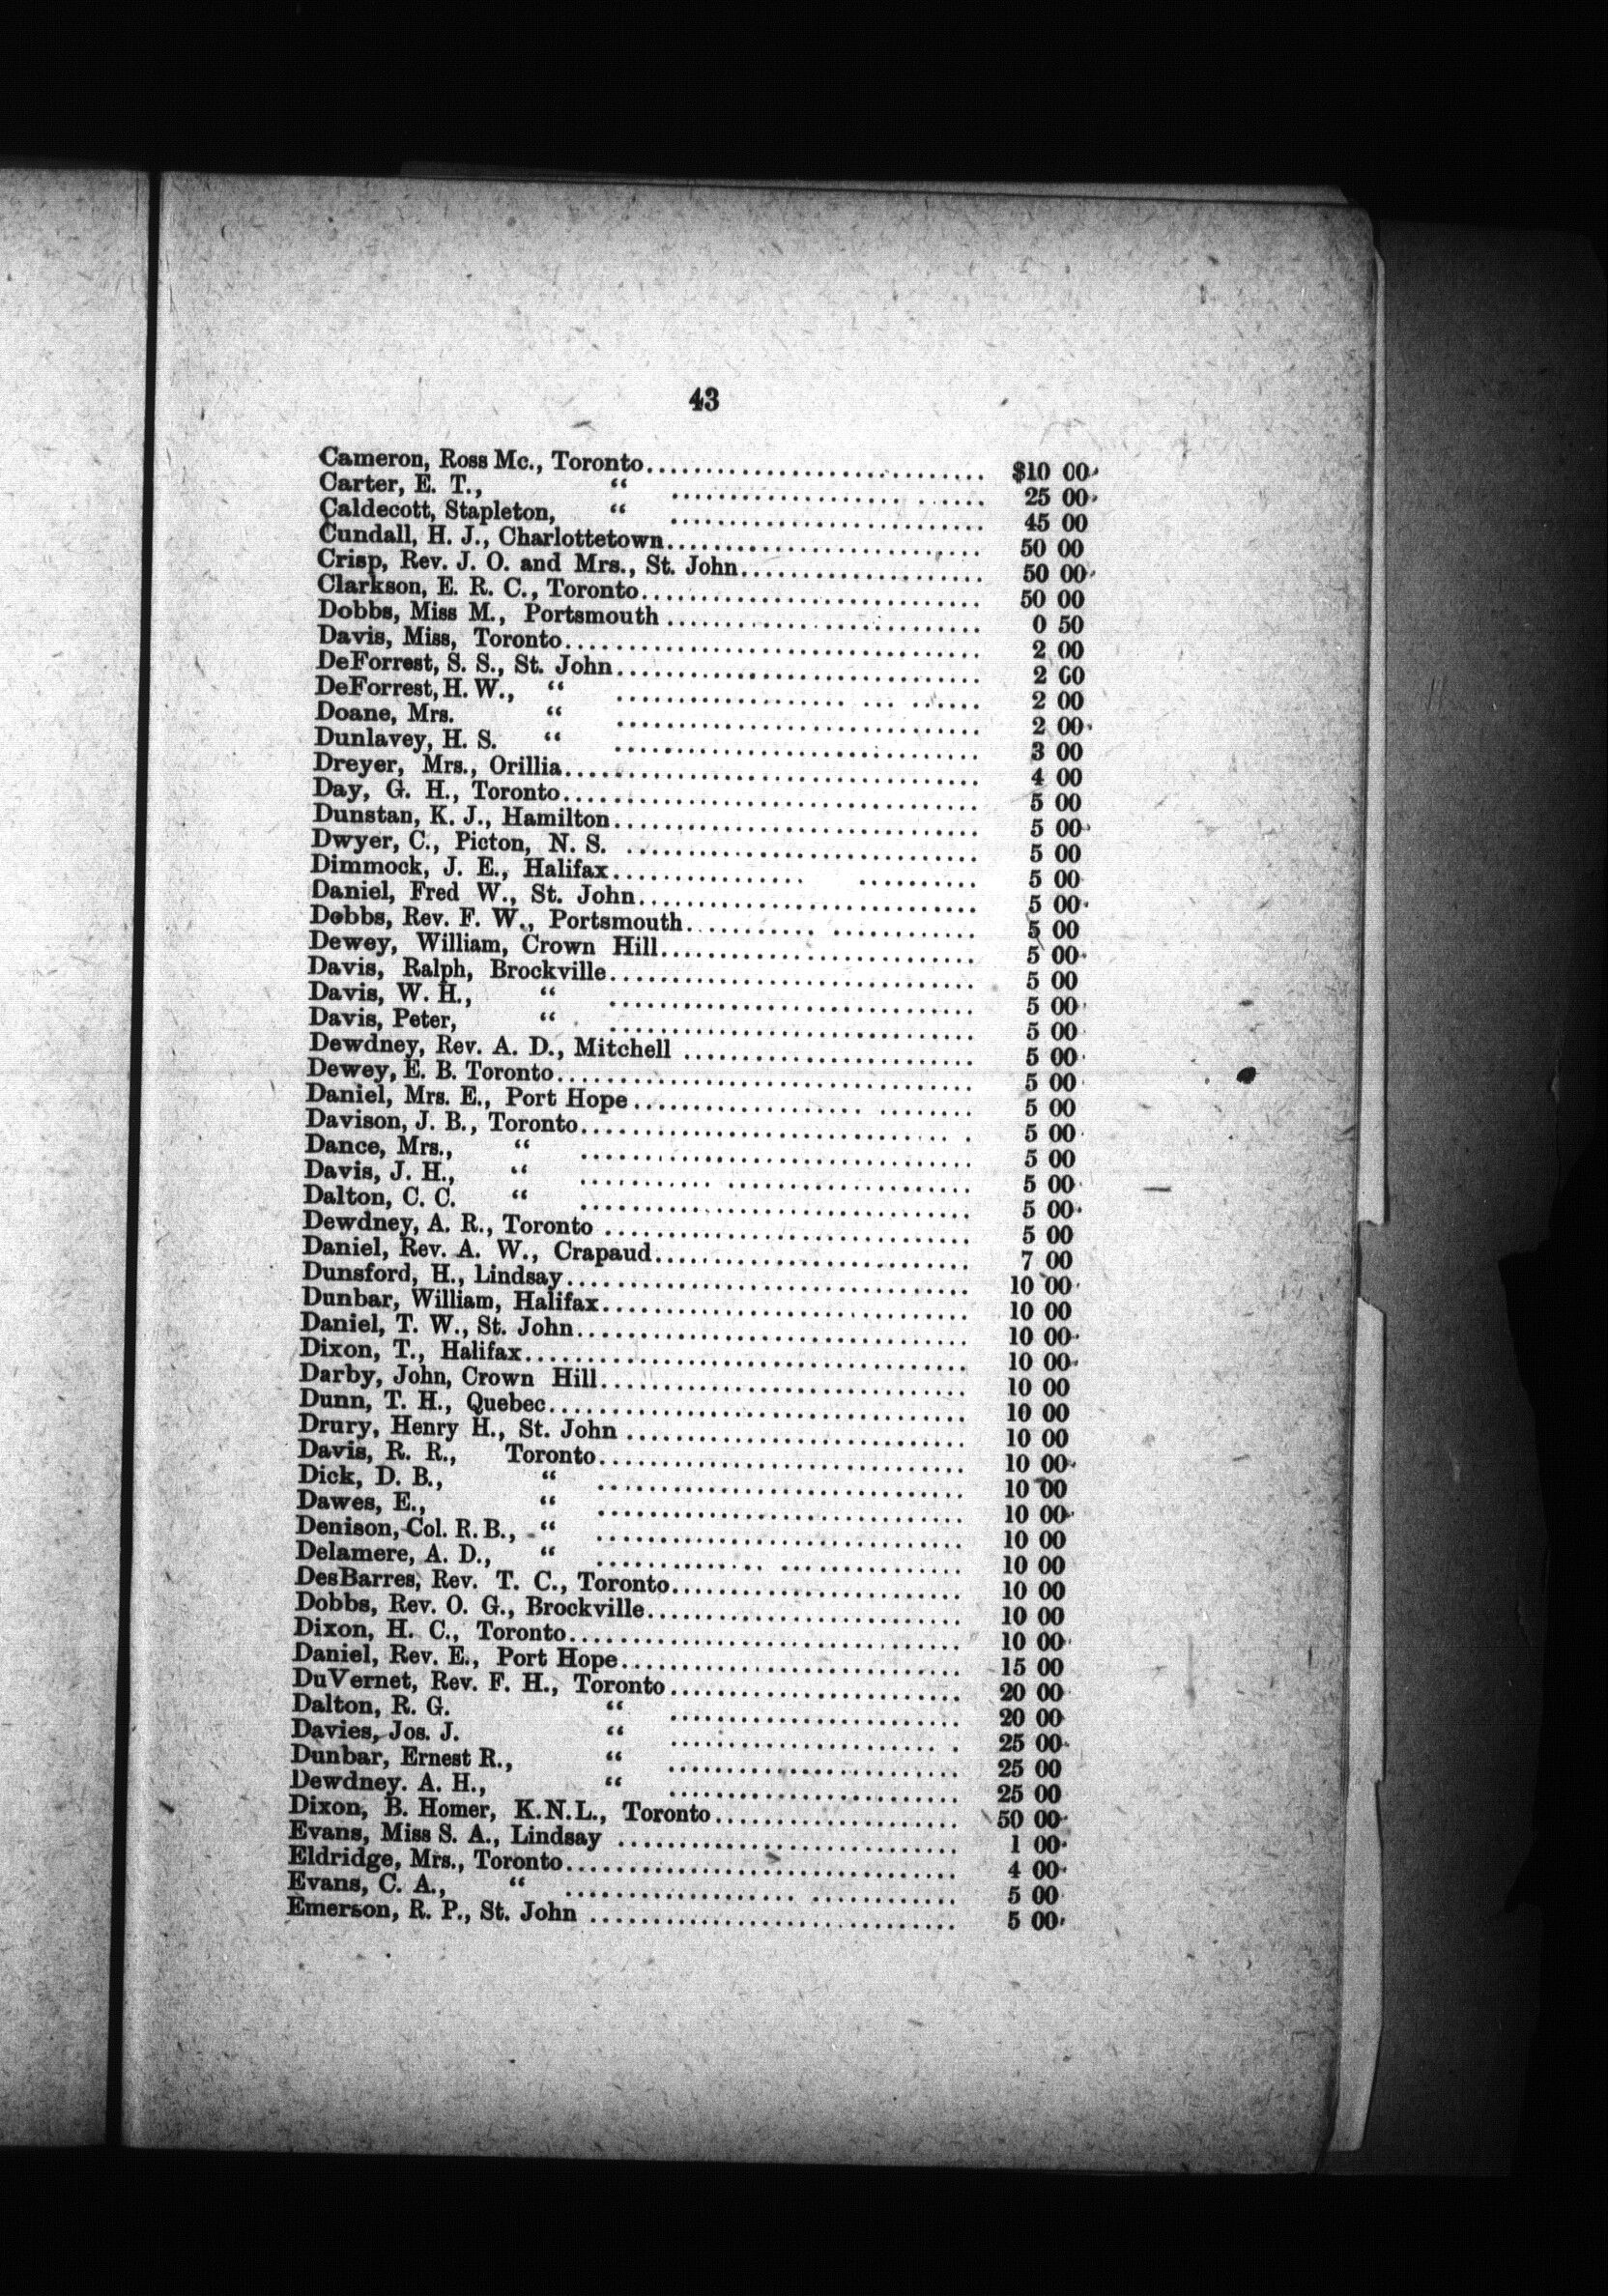 43
Cameron, Ross Mc., Toronto.......... $10 00
Carter, E. T., “ .......... 25 00
Caldecott, Stapleton, “ .......... 45 00
Cundall, H. J., Charlottetown.......... 50 00
Crisp, Rev. J. O. and Mrs., St. John.......... 50 00
Clarkson, E. R. C., Toronto.......... 50 00
Dobbs, Miss M., Portsmouth .......... 0 50
Davis, Miss, Toronto.......... 2 00
DeForrest, S. S., St. John.......... 2 00
DeForrest, H. W., “ .......... 2 00
Doane, Mrs. “ .......... 2 00
Dunlavey, H. S. “ .......... 3 00
Dreyer, Mrs., Orillia.......... 4 00
Day, G. H., Toronto.......... 5 00
Dunstan, K. J., Hamilton.......... 5 00
Dwyer, C., Picton, N. S. .......... 5 00
Dimmock, J. E., Halifax.......... 5 00
Daniel, Fred W., St. John.......... 5 00
Dobbs, Rev. F. W., Portsmouth.......... 5 00
Dewey, William, Crown Hill.......... 5 00
Davis, Ralph, Brockville.......... 5 00
Davis, W. H., “ .......... 5 00
Davis, Peter, “ .......... 5 00
Dewdney, Rev. A. D., Mitchell .......... 5 00
Dewey, E. B. Toronto.......... 5 00
Daniel, Mrs. E., Port Hope.......... 5 00
Davison, J. B., Toronto.......... 5 00
Dance, Mrs., “ .......... 5 00
Davis, J. H., “ .......... 5 00
Dalton, C. C. “ .......... 5 00
Dewdney, A. R., Toronto .......... 5 00
Daniel, Rev. A. W., Crapaud.......... 7 00
Dunsford, H., Lindsay.......... 10 00
Dunbar, William, Halifax.......... 10 00
Daniel, T. W., St. John.......... 10 00
Dixon, T., Halifax.......... 10 00
Darby, John, Crown Hill.......... 10 00
Dunn, T. H., Quebec.......... 10 00
Drury, Henry H., St. John .......... 10 00
Davis, R. R., Toronto.......... 10 00
Dick, D. B., “ .......... 10 00
Dawes, E., “ .......... 10 00
Denison, Col. R. B., “ .......... 10 00
Delamere, A. D., “ .......... 10 00
DesBarres, Rev. T. C., Toronto.......... 10 00
Dobbs, Rev. O. G., Brockville.......... 10 00
Dixon, H. C., Toronto.......... 10 00
Daniel, Rev. E., Port Hope.......... 15 00
DuVernet, Rev. F. H., Toronto.......... 20 00
Dalton, R. G. “ .......... 20 00
Davies, Jos. J. “ .......... 25 00
Dunbar, Ernest R., “ .......... 25 00
Dewdney. A. H., “ .......... 25 00
Dixon, B. Homer, K.N.L., Toronto.......... 50 00
Evans, Miss S. A., Lindsay .......... 1 00
Eldridge, Mrs., Toronto.......... 4 00
Evans, C. A., “ .......... 5 00
Emerson, R. P., St. John .......... 5 00